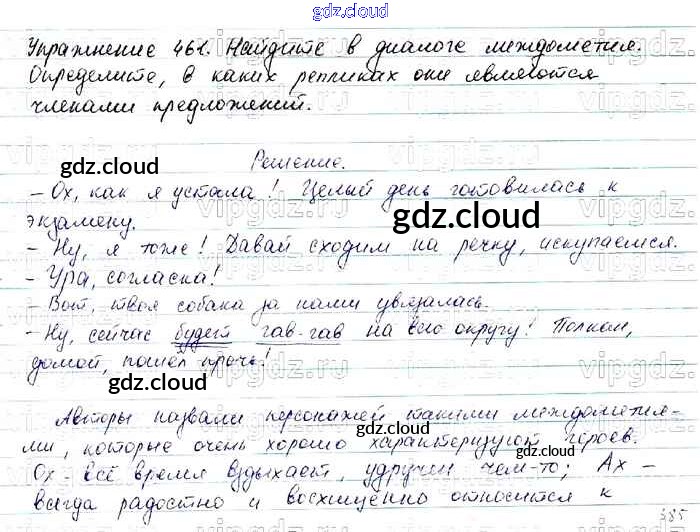 gdz.cloud
Упражнение 461. Найдите в диалоге междометия.
Определите, в каких репликах они являются
членами предложений.
gdz.cloud
Решение.
- Ох, как я устала! Целый день готовилась к
экзамену.
gdz.cloud
- Ну, я тоже! Давай сходим на речку, искупаемся.
- Ура, согласна!
- Вот, твоя собака за нами увязалась.
- Ну, сейчас будет гав-гав на всю округу! Полкан,
домой, пошёл прочь!
gdz.cloud
Авторы назвали персонажей такими междометия-
ми, которые очень хорошо характеризуют героев.
gdz.cloud
Ох - всё время вздыхает, удручён чем-то; Ах -
всегда радостно и восхищенно относится к
gdz.cloud
385
vipgdz.ru